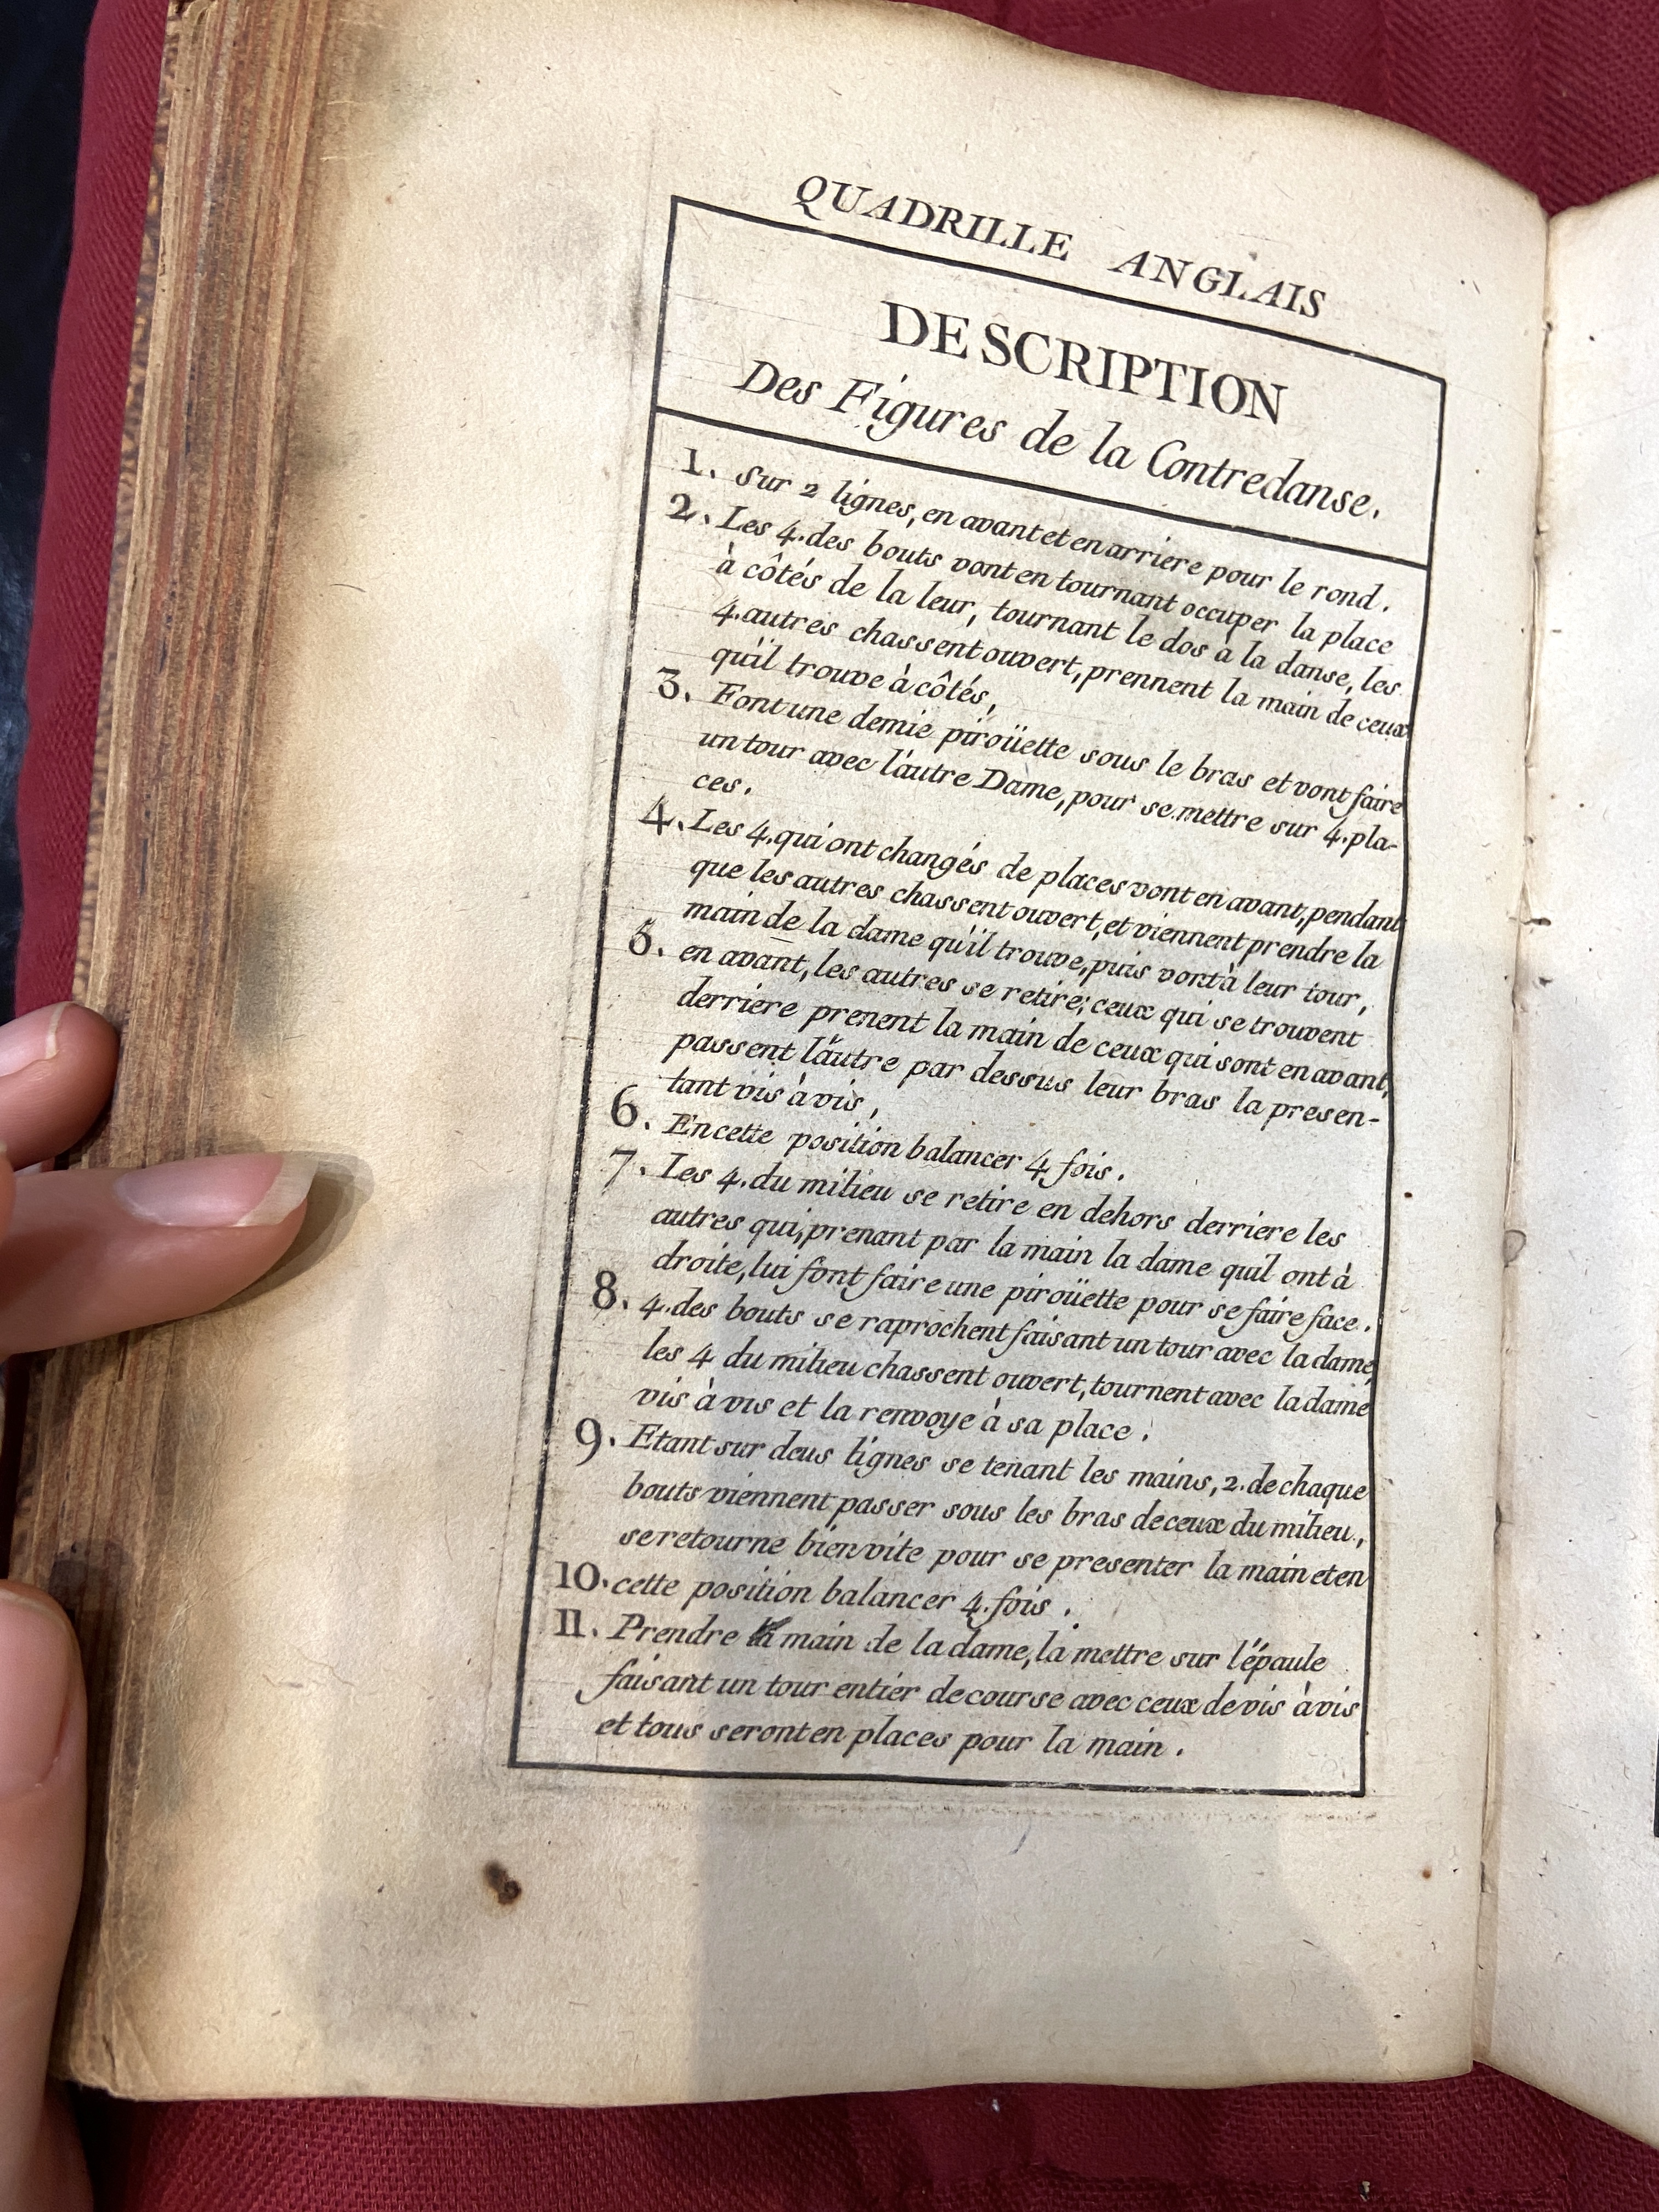 QUADRILLE ANGLAIS
DESCRIPTION
Des Figures de la Contredanse.
1. Sur 2 lignes, en avant et en arriere pour le rond.
2. Les 4. des bouts vont en tournant occuper la place
à côtés de la leur, tournant le dos a la danse, les
4. autres chassent ouvert, prennent la main de ceux
qu'il trouve à côtés,
3. Font une demie piroüette sous le bras et vont faire
un tour avec l'autre Dame, pour se mettre sur 4. pla-
ces.
4. Les 4. qui ont changés de places vont en avant, pendant
que les autres chassent ouvert, et viennent prendre la
main de la dame qu'il trouve, puis vont à leur tour,
5. en avant, les autres se retire; ceux qui se trouvent
derriere prenent la main de ceux qui sont en avant,
passent l'autre par dessus leur bras la presen-
tant vis à vis,
6. En cette position balancer 4 fois.
7. Les 4. du milieu se retire en dehors derriere les
autres qui, prenant par la main la dame quil ont à
droite, lui font faire une piroüette pour se faire face.
8. 4. des bouts se raprochent faisant un tour avec la dame,
les 4 du milieu chassent ouvert, tournent avec la dame
vis à vis et la renvoye à sa place.
9. Etant sur deus lignes se tenant les mains, 2. de chaque
bouts viennent passer sous les bras de ceux du milieu,
se retourne bien vite pour se presenter la main et en
10. cette position balancer 4. fois.
11. Prendre la main de la dame, la mettre sur l'épaule
faisant un tour entier de course avec ceux de vis à vis
et tous seront en places pour la main.